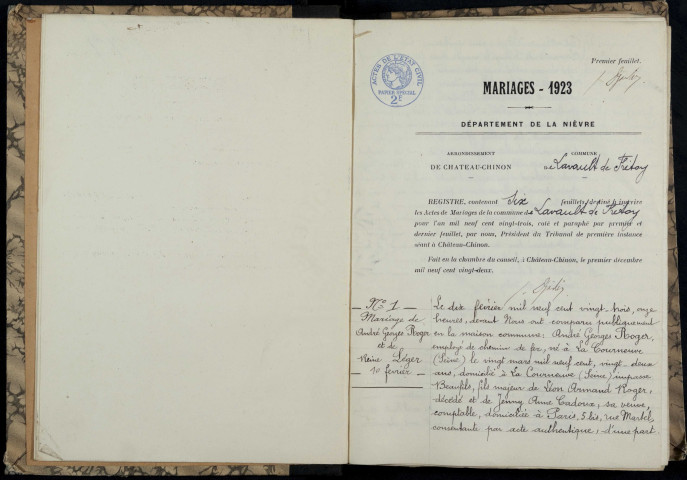 Premier feuillet.
ACTES DE L'ETAT CIVIL
PAPIER SPECIAL
2F
MARIAGES - 1923
DÉPARTEMENT DE LA NIÈVRE
ARRONDISSEMENT
DE CHATEAU-CHINON
COMMUNE
de Lavault de Frétoy
REGISTRE, contenant Six feuillets, destiné à inscrire
les Actes de Mariages de la commune de Lavault de Frétoy
pour l'an mil neuf cent vingt-trois, coté et paraphé par premier et
dernier feuillet, par nous, Président du Tribunal de première instance
séant à Château-Chinon.
Fait en la chambre du conseil, à Château-Chinon, le premier décembre
mil neuf cent vingt-deux.
N° 1
Mariage de
André Georges Roger
et de
Reine Léger
10 février
Le dix février mil neuf cent vingt trois, onze
heures, devant Nous ont comparu publiquement
en la maison commune: André Georges Roger,
employé de chemin de fer, né à La Courneuve
(Seine) le vingt mars mil neuf cent, vingt-deux
ans, domicilié à La Courneuve (Seine) impasse
Beaufils, fils majeur de Léon Armand Roger,
décédé et de Jenny Anne Cadoux, sa veuve,
comptable, domiciliée à Paris, 5 bis, rue Martel,
consentante par acte authentique, d'une part.